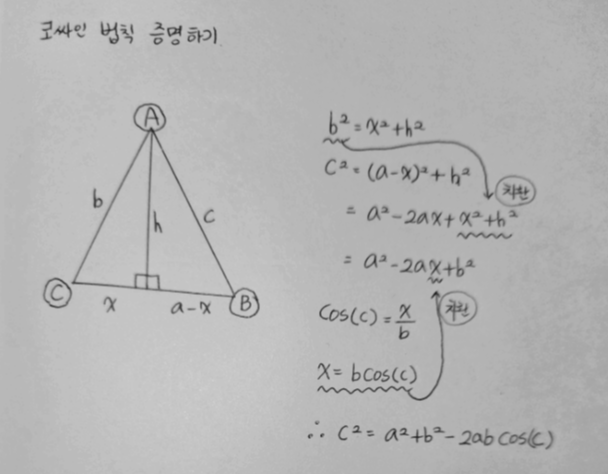 코싸인 법칙 증명하기
A
b
h
c
C
x
a-x
B
b² = x²+h²
c² = (a-x)²+h²
치환
= a²-2ax+x²+h²
= a²-2ax+b²
cos(c) = x/b
치환
x = bcos(c)
∴ c² = a²+b²-2ab cos(c)